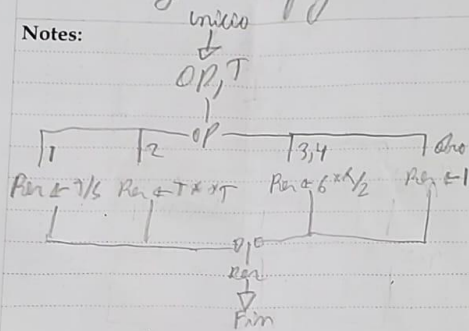 Notes:
inicio
OP, T
OP
1 2 3,4 otro
Res ← T/5 Res ← T**T Res ← 6 / 2 Res ← 1
Res
Fin